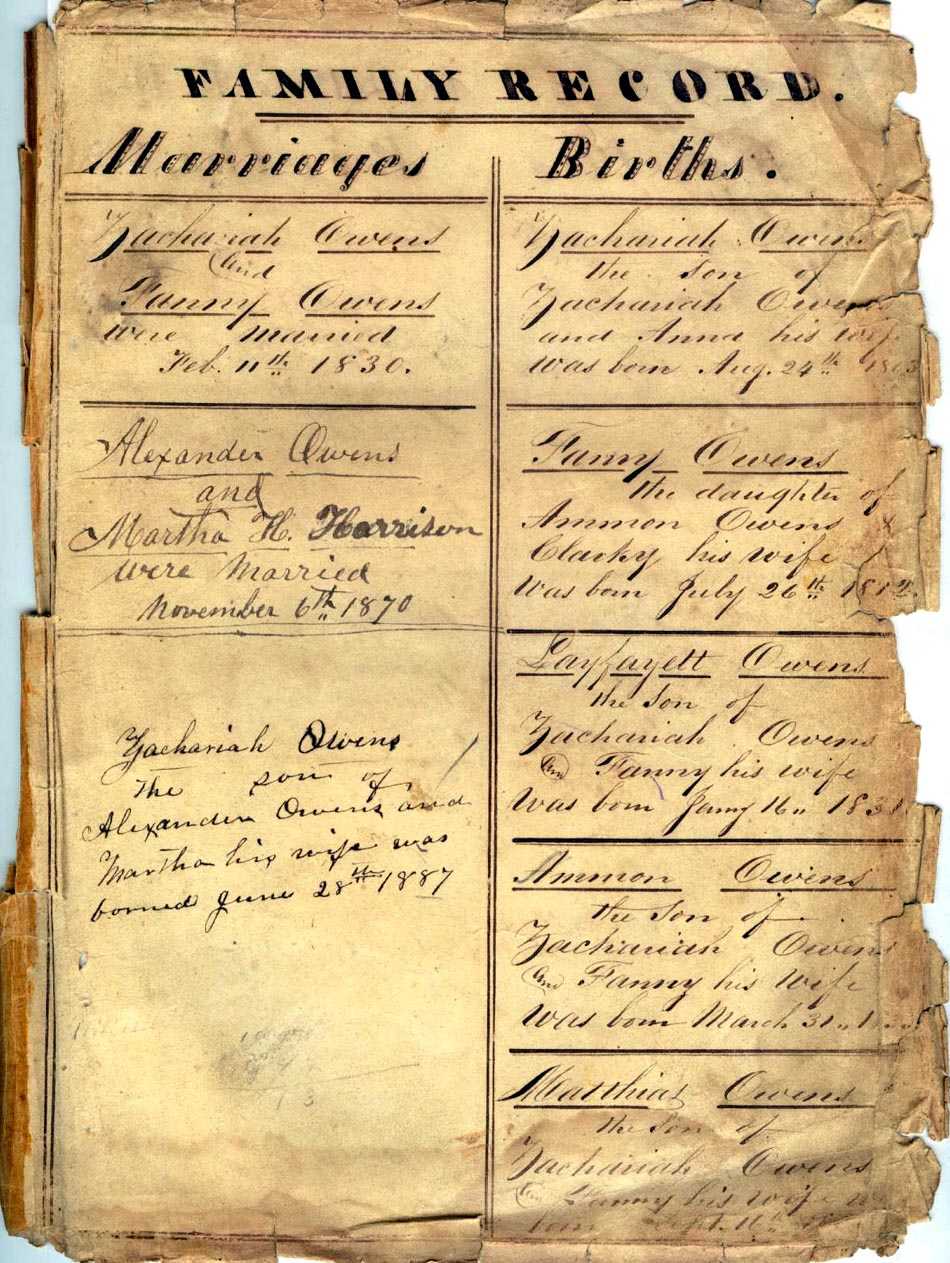 FAMILY RECORD.
Marriages
Zachariah Owens
and
Fanny Owens
were married
Feb. 11th 1830.
Alexander Owens
and
Martha H. Harrison
were Married
November 6th 1870
Zachariah Owens
the son of
Alexander Owens and
Martha his wife was
borned June 28th 1887
Births.
Zachariah Owens
the son of
Zachariah Owens
and Anna his wife
was born Aug. 24th
Fanny Owens
the daughter of
Ammon Owens &
Clacky his wife
was born July 26th
Layfayett Owens
the son of
Zachariah Owens
and Fanny his wife
was born Jany 16
Ammon Owens
the Son of
Zachariah Owens
and Fanny his wife
was born March 31
Matthias Owens
the Son of
Zachariah Owens
and Fanny his wife
born Sept. 11th